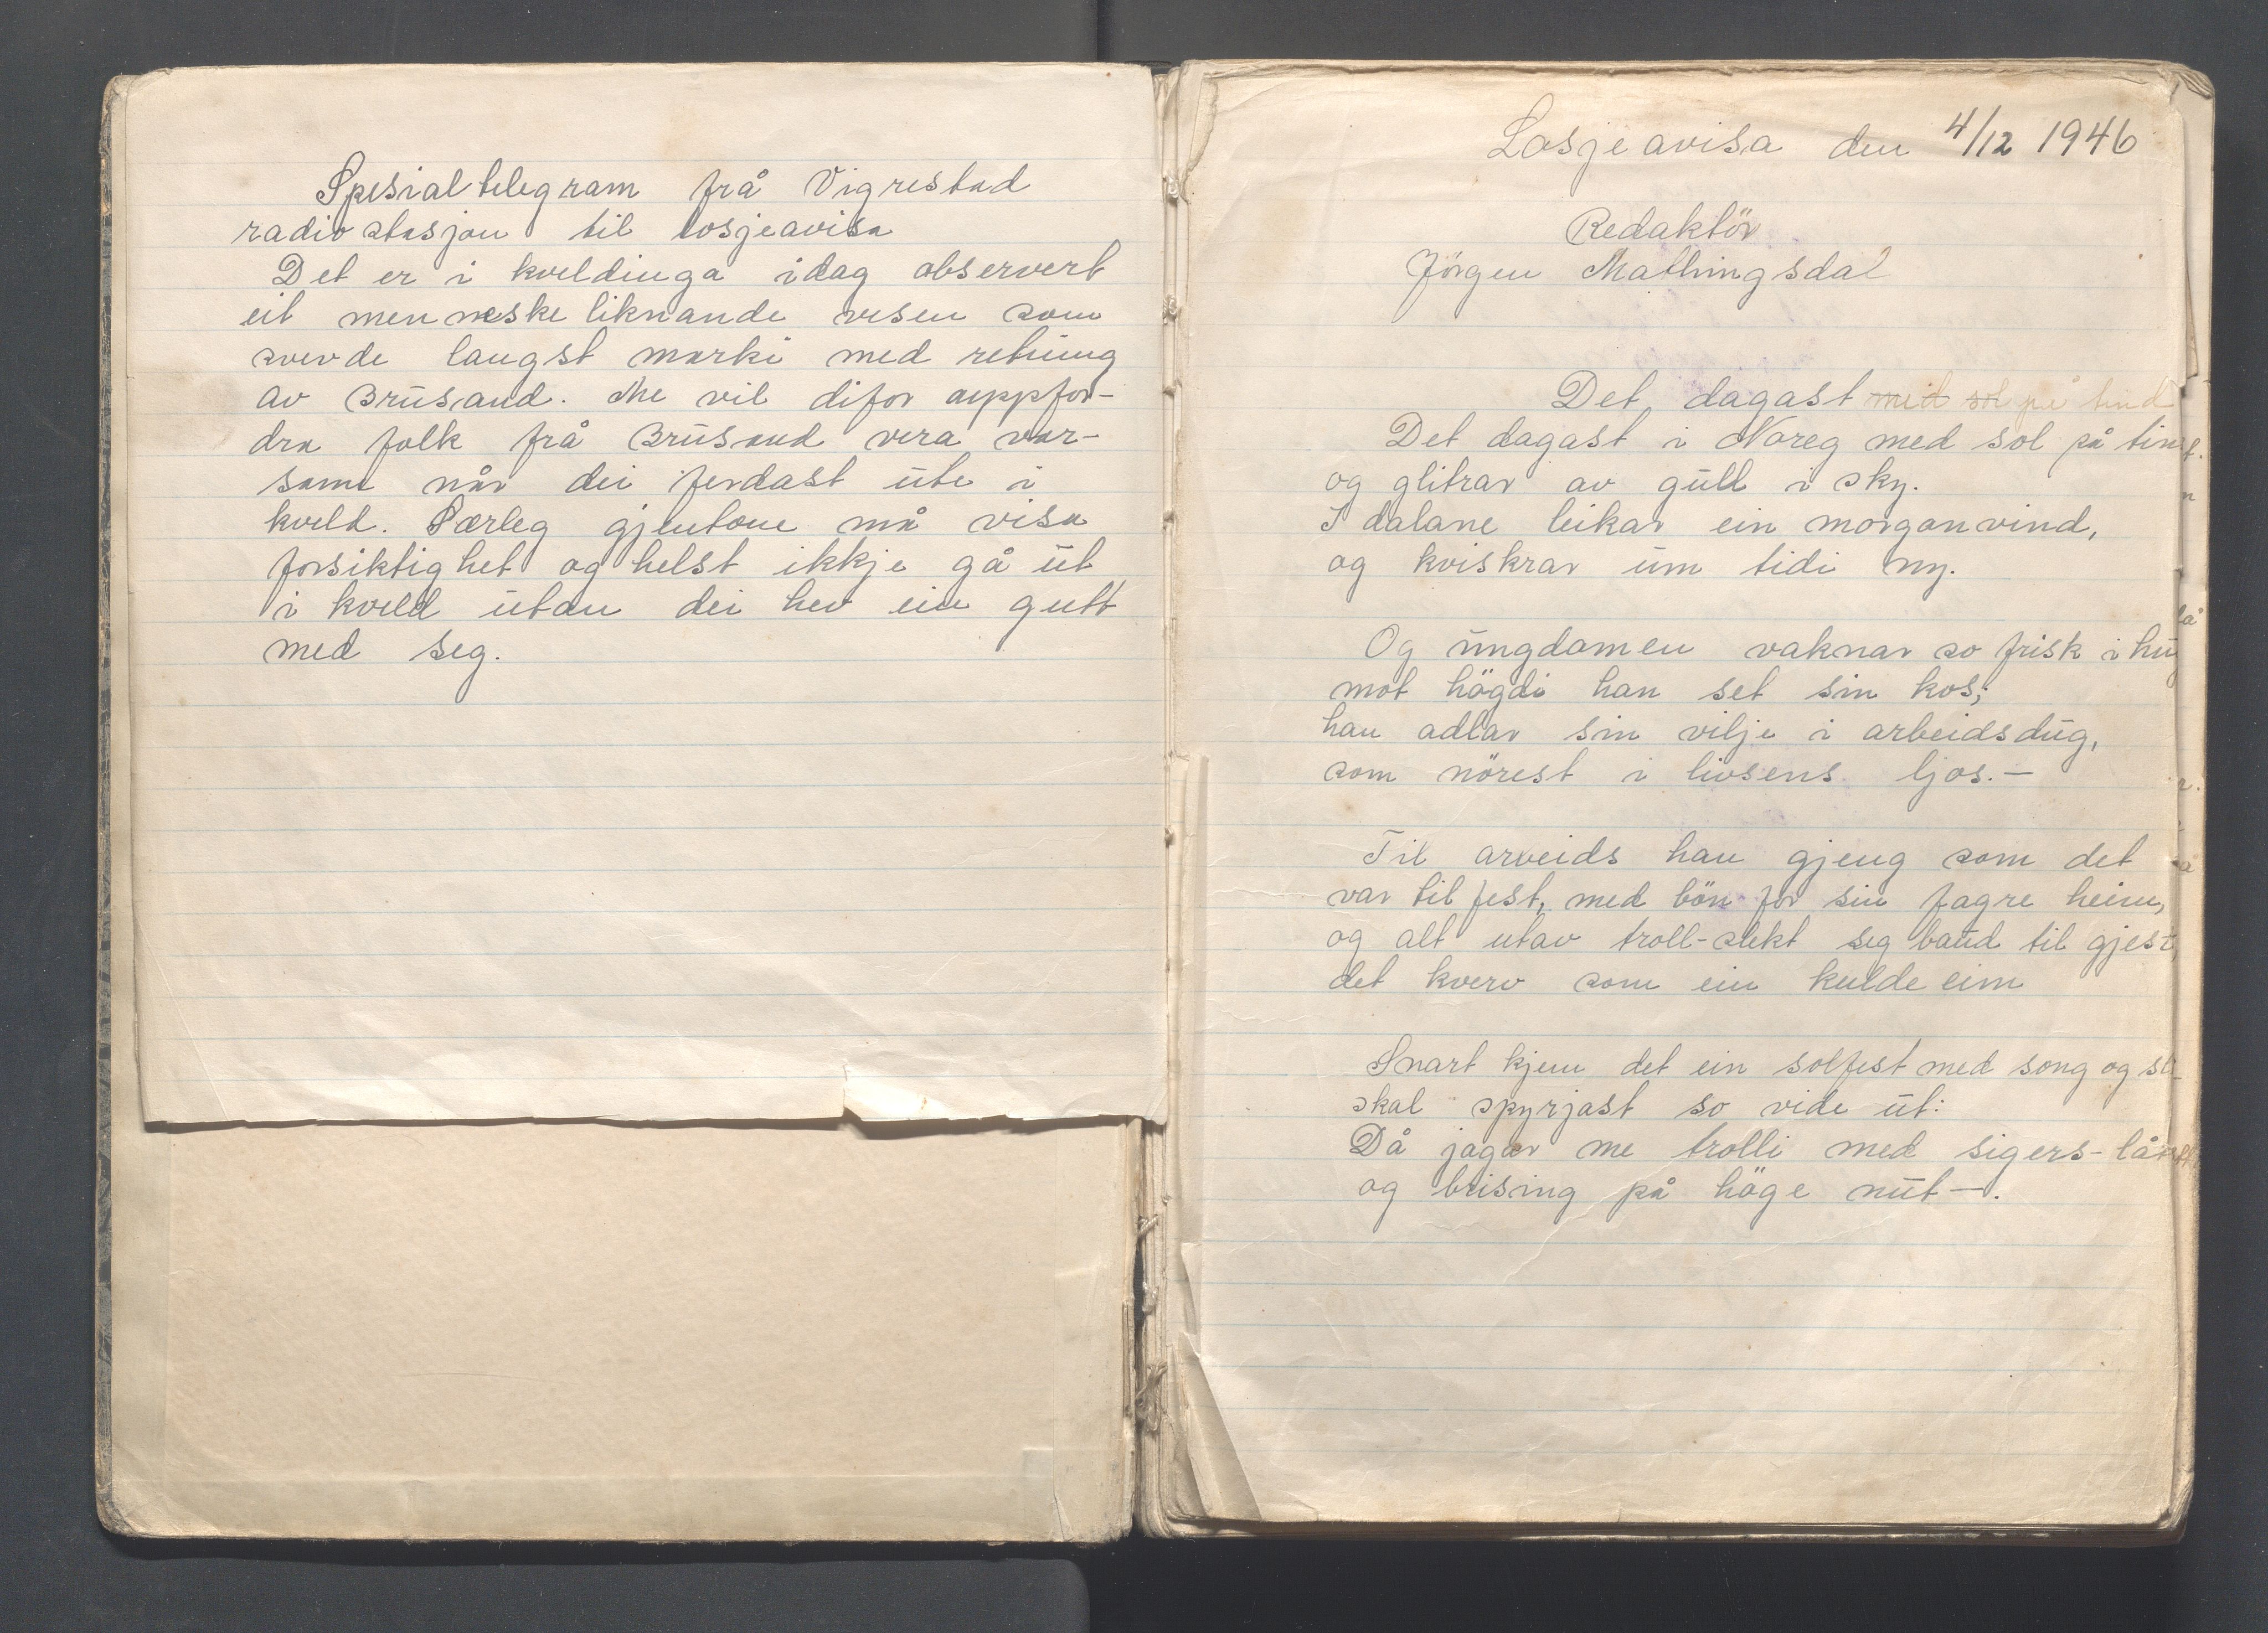 Spesialtelegram frå Vigrestad
radiostasjon til losjeavisa
Det er i kveldinga idag observert
eit menneske liknande vesen som
svevde langst marki med retning
av Brusand. Me vil difor oppfor-
dra folk frå Brusand vera var-
same når dei ferdast ute i
kveld. Særleg gjentone må visa
forsiktighet og helst ikkje gå ut
i kveld utan dei hev ein gutt
med seg.
Losjeavisa den 4/12 1946
Redaktör
Jörgen Mathingsdal
Det dagast med sol på tind
Det dagast i Noreg med sol på tind
og glitrar av gull i sky.
I dalane leikar ein morganvind,
og kviskrar um tidi ny.
Og ungdomen vaknar so frisk i hug
mot högdi han set sin kos;
han adlar sin vilje i arbeidsdug,
som nörest i livsens ljos.—
Til arveids han gjeng som det
var til fest, med bön for sin fagre heim,
og alt utav troll-slekt seg baud til gjest,
det kverv som ein kulde eim
Snart kjem det ein solfest med song og
skal spyrjast so vide ut:
Då jagar me trolli med sigers-lått
og brising på höge nut—.